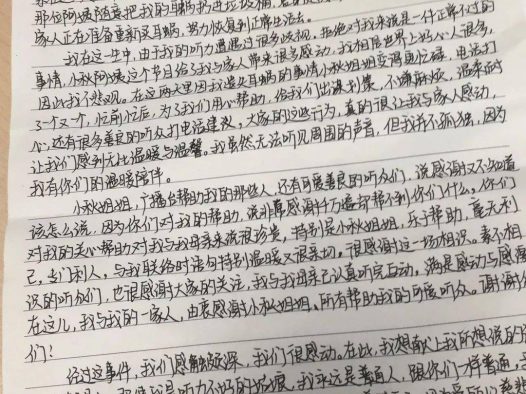 那位阿姨随意把我的耳蜗扔进垃圾桶
家人正在准备重新买耳蜗，努力恢复到正常生活去。
我在这一生中，由于我的听力遭遇过很多歧视。拒绝对我来说是一件正常不过的
事情，小秋阿姨这个节目给了我与家人带来很多感动，我相信世界上好心人很多，
因此我不悲观。在这两天里因我遗失耳蜗的事情小秋姐姐变得更忙碌，电话打
了一个又一个，忙前忙后，为了我们用心帮助，给我们出谋划策，不嫌麻烦，温柔而
心，还有很多善良的听众打电话建议，大家的这些行为，真的很让我与家人感动，
让我们感到无比温暖与温馨。我虽然无法听见周围的声音，但我并不孤独，因为
我有你们的温暖陪伴。
小秋姐姐，广播台帮助我的那些人，还有可爱善良的听众们，说感谢又不知道
该怎么说，因为你们对我的帮助，说过感谢千万遍却帮不到你们什么。你们
对我的关心帮助对我与我母亲来说很珍贵，特别是小秋姐姐，乐于帮助，毫无利
己，专门利人，与我联络时语句特别温暖又很亲切。很感谢这一场相识。素不相
识的听众们，也很感谢大家的关注，我与我母亲已认真听完互动，满是感动与感激
在这儿，我与我的一家人，由衷感谢小秋姐姐，所有帮助我的可爱听众。谢谢你
们！
经过这事件，我们感触颇深，我们很感动。在此，我想献上我所想说的
我是听力不好的 我永远是普通人，跟你们一样普通，